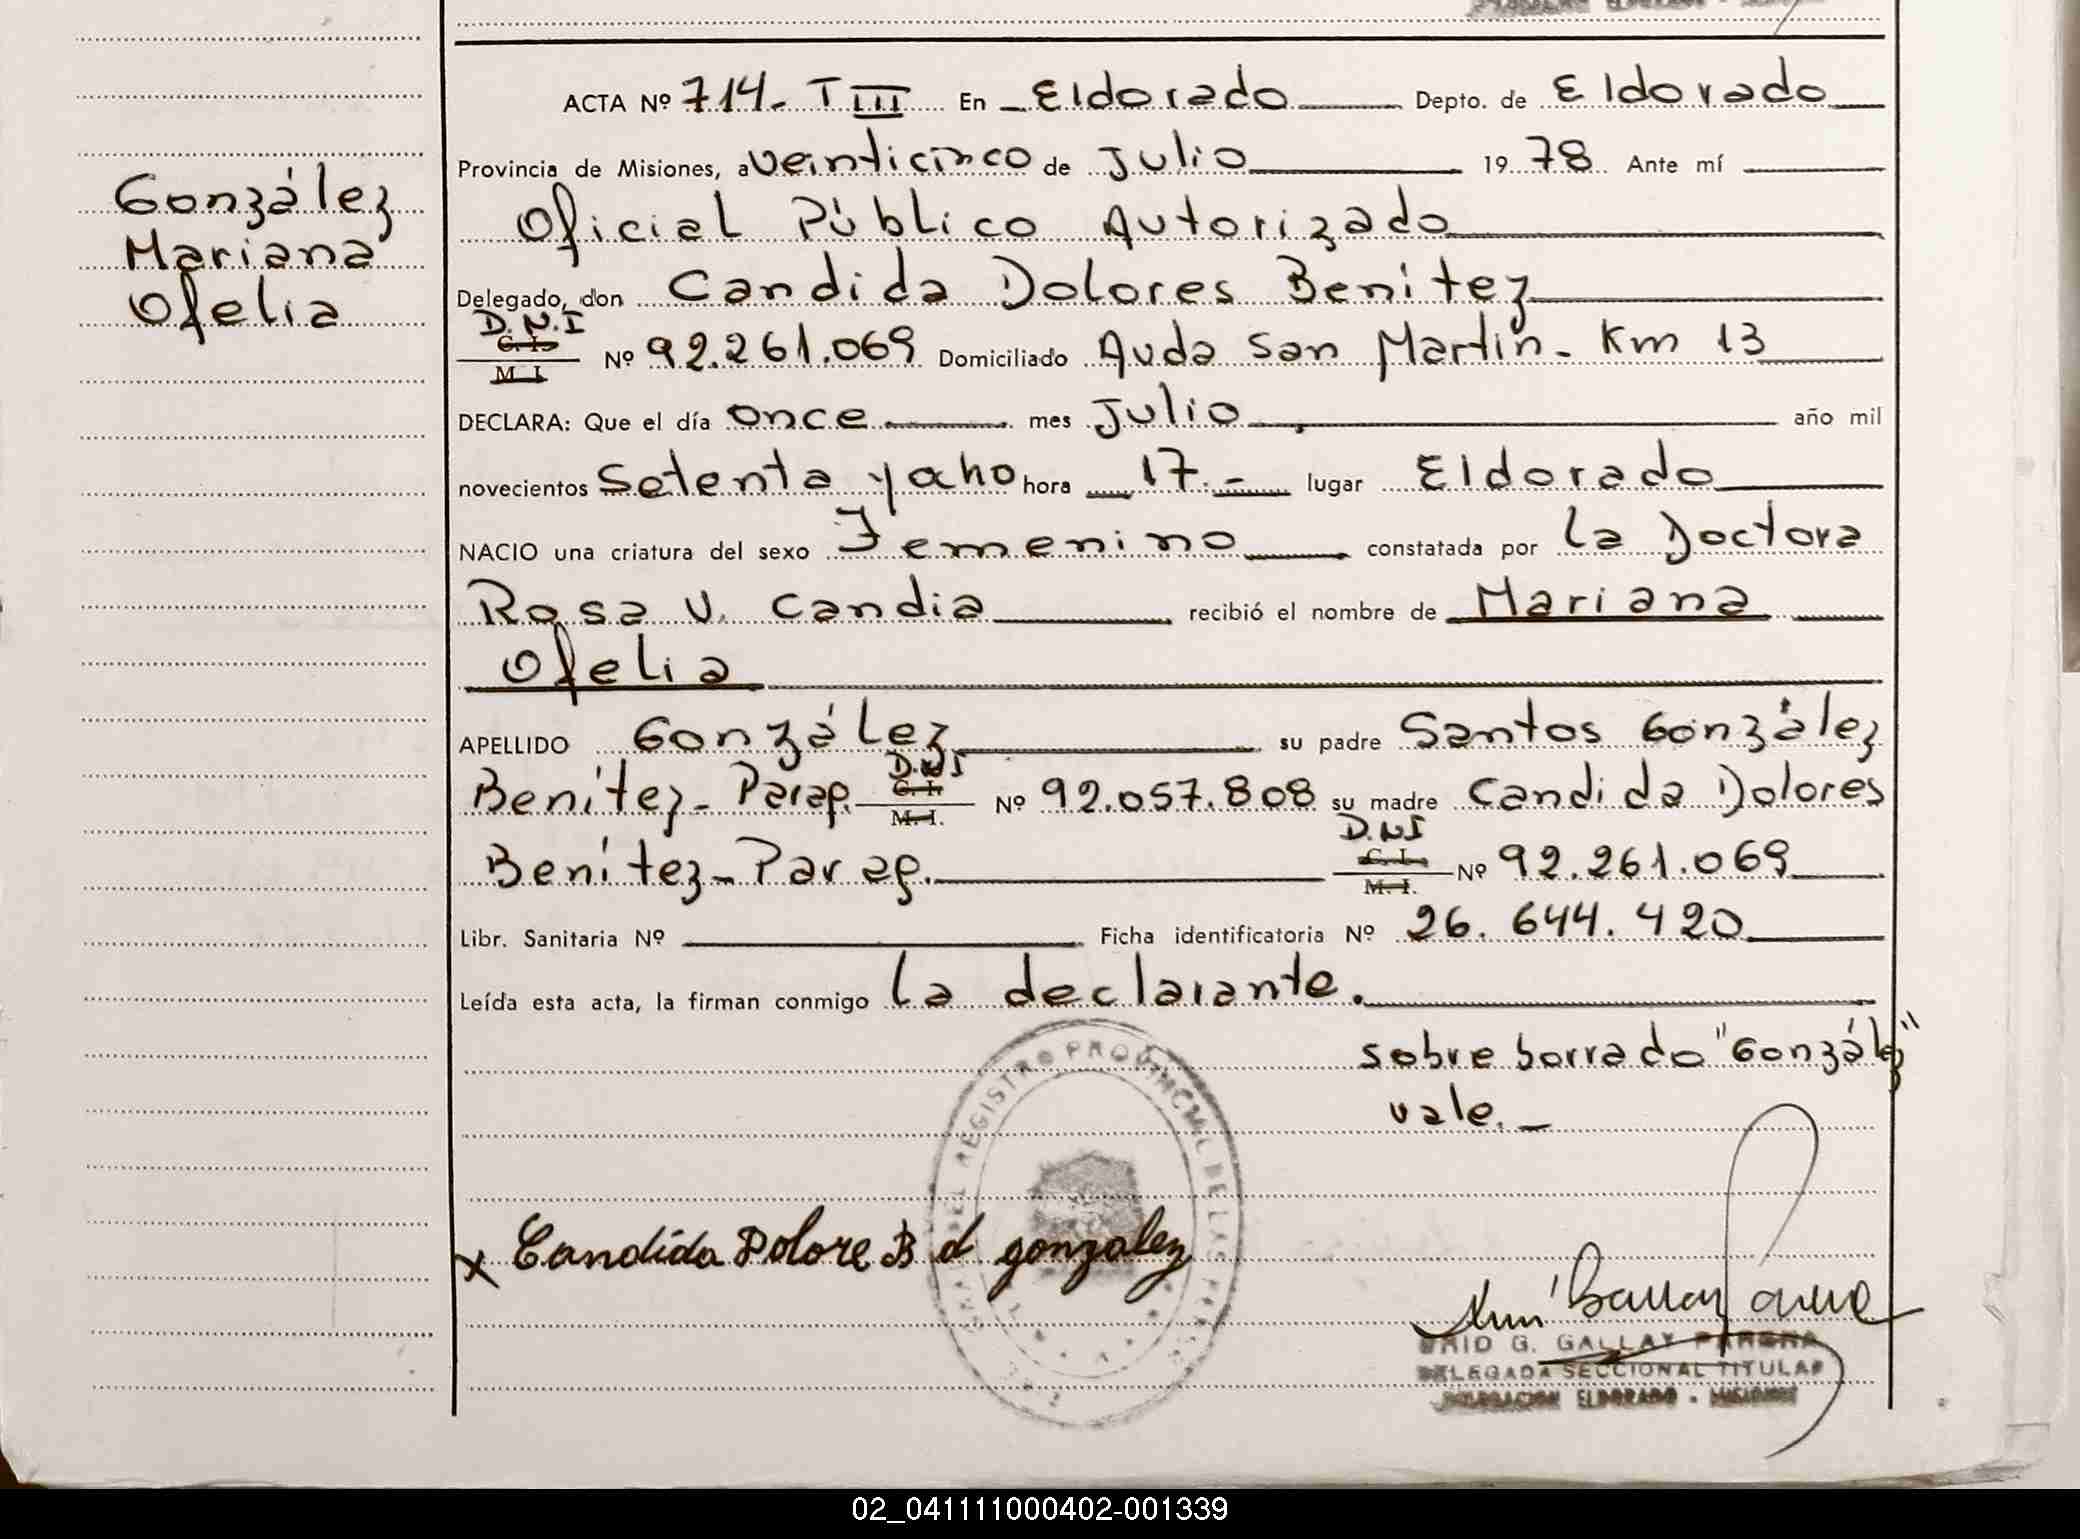 ACTA Nº 714.- T III En Eldorado Depto. de Eldorado
González
Mariana
Ofelia
Provincia de Misiones, a veinticinco de Julio 19 78 Ante mí
Oficial Público Autorizado
Delegado, don Candida Dolores Benítez
D.N.I C. I. M. I. Nº 92.261.069 Domiciliado Avda San Martín - Km 13
DECLARA: Que el día once mes Julio año mil
novecientos setenta y ocho hora 17.- lugar Eldorado
NACIO una criatura del sexo Femenino constatada por la Doctora
Rosa V. Candia recibió el nombre de Mariana
Ofelia
APELLIDO González su padre Santos González
Benítez - Parag. D.N.I C. I. M. I. Nº 92.057.808 su madre Candida Dolores
Benítez - Parag. D.N.I C. I. M. I. Nº 92.261.069
Libr. Sanitaria Nº Ficha identificatoria Nº 26.644.420
Leída esta acta, la firman conmigo la declarante.
sobre borrado "González"
vale.-
REGISTRO PROVINCIAL DE LAS
x Candida Dolore B d gonzalez
G. GALLAY
DELEGADA SECCIONAL TITULAR
DELEGACION ELDORADO - MISIONES
02_041111000402-001339